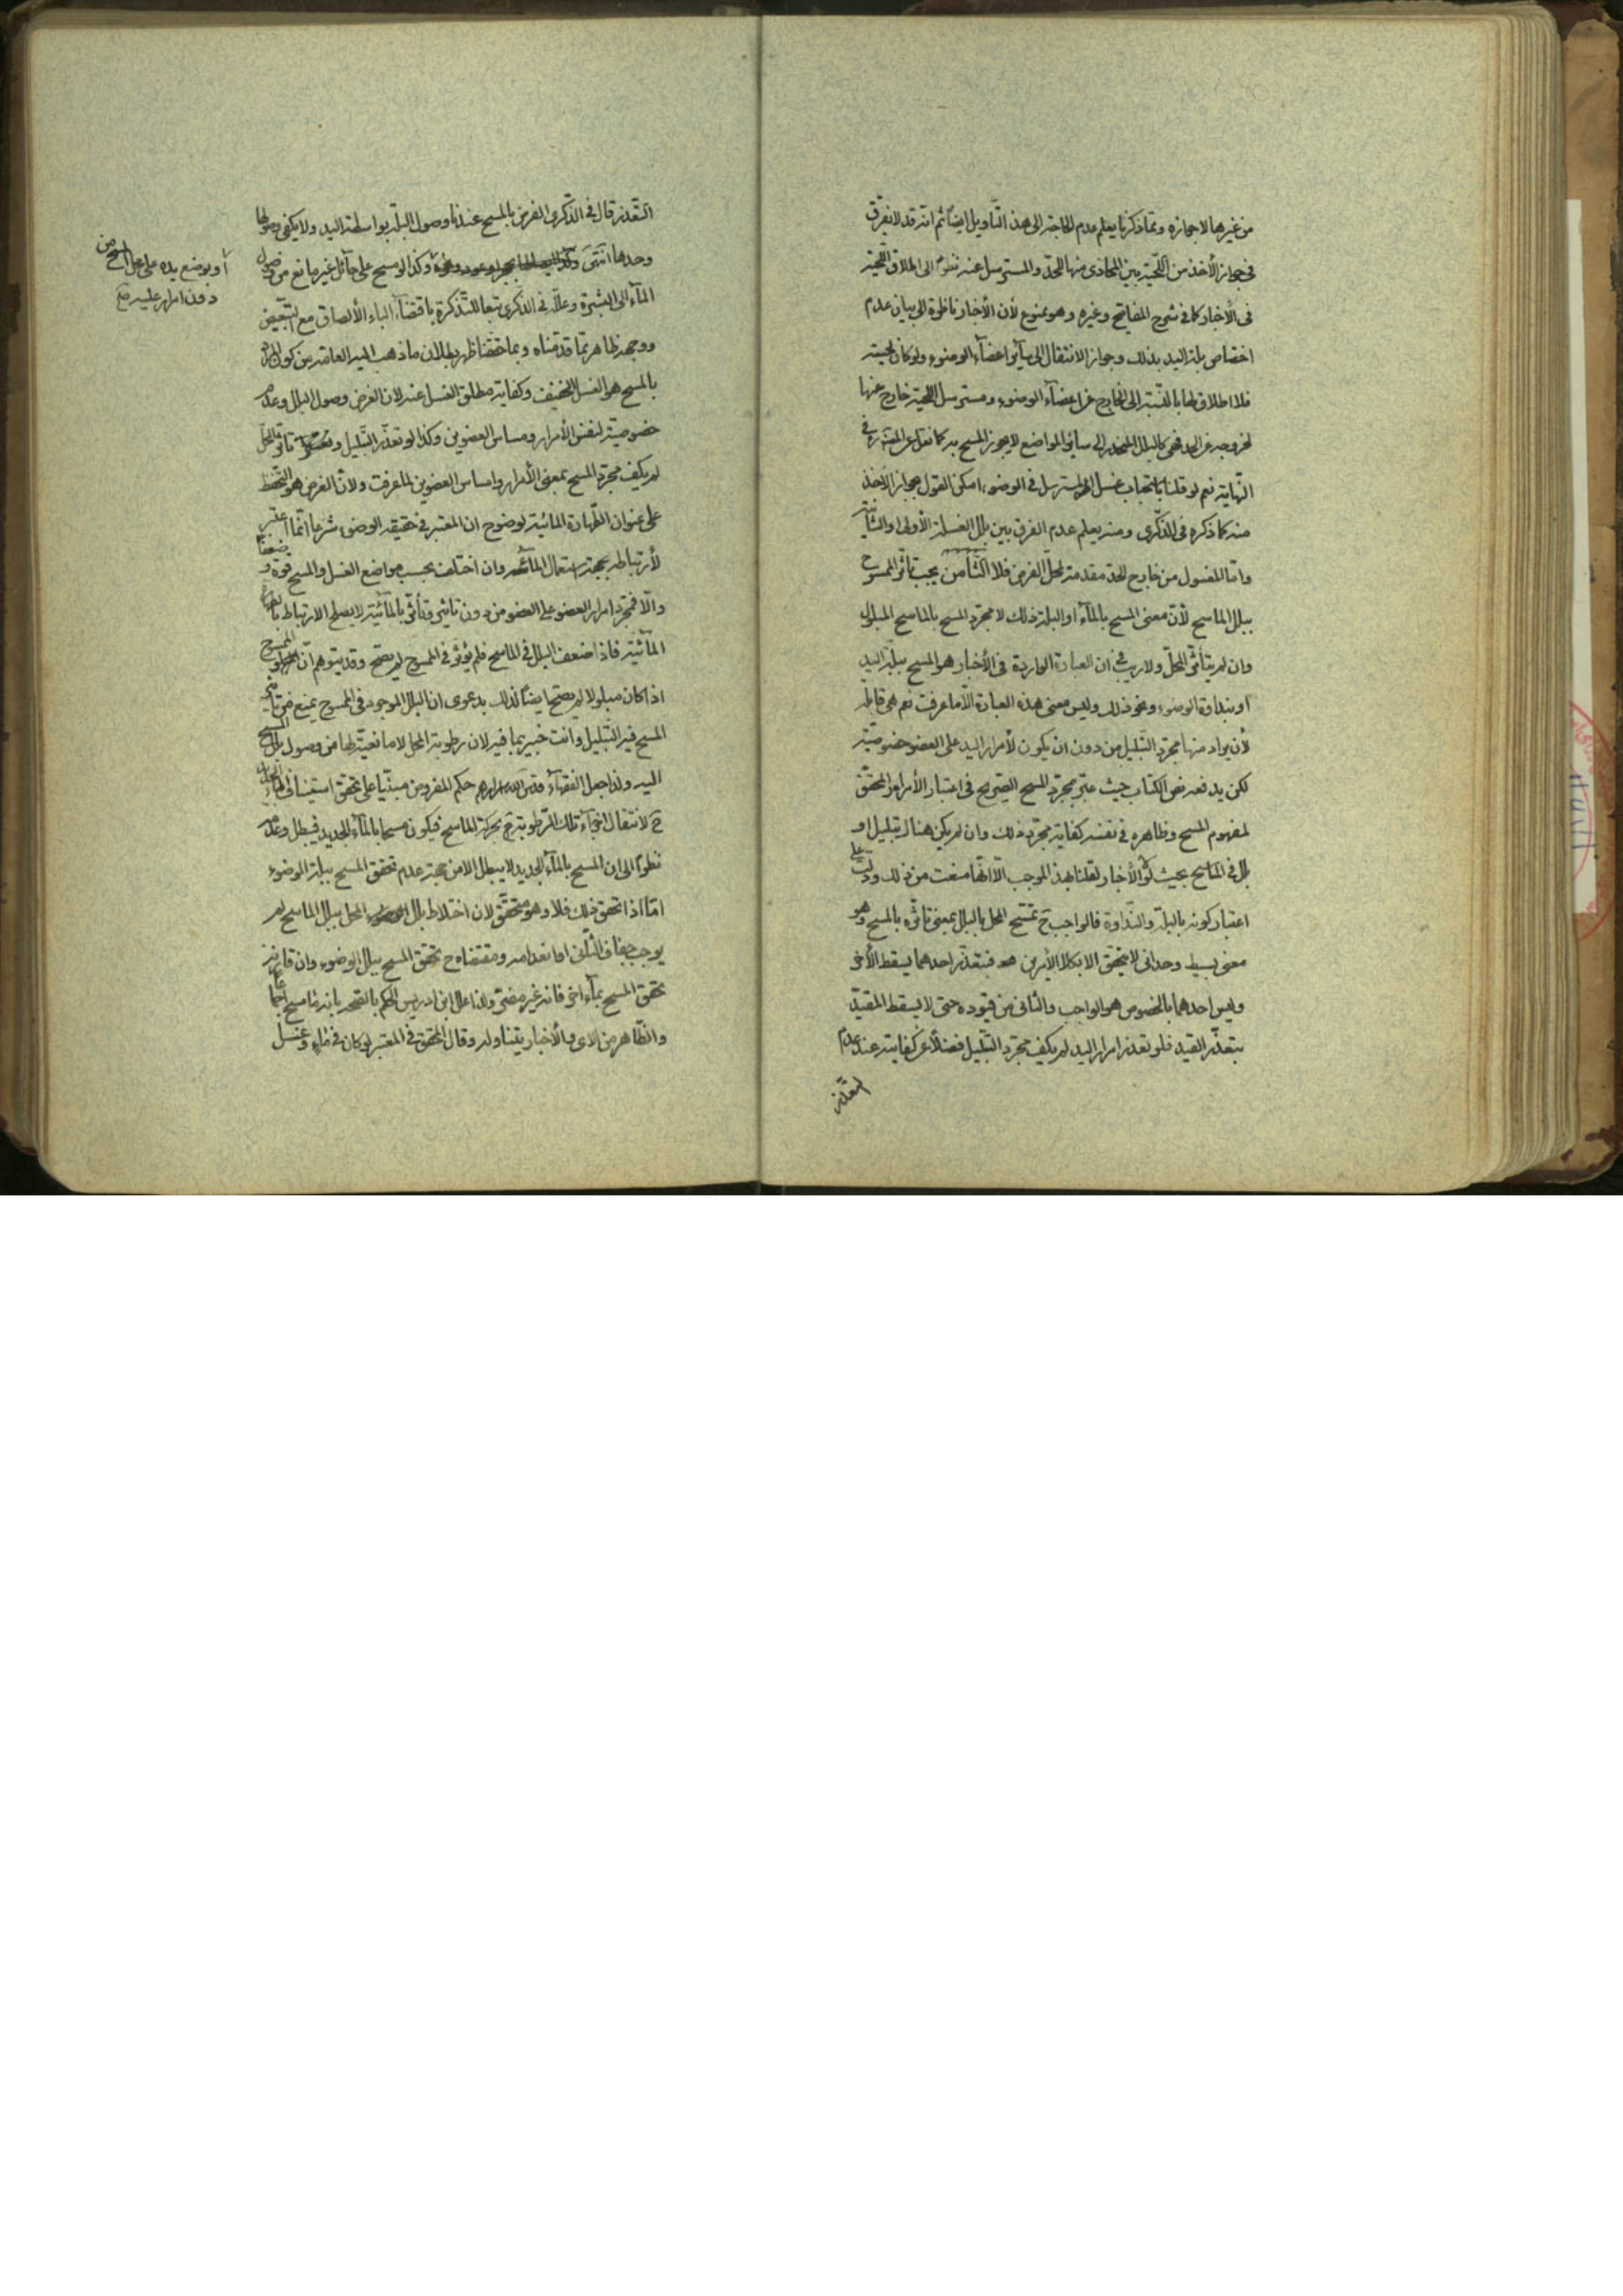 من غيرها لا جوازه ومما ذكرنا يعلم عدم الحاجة الى هذا التأويل ايضا ثم انه قد لا يفرق
فى جواز الأخذ من اللحية بين المحاذى منها للحد والمسترسل عنه نظرا الى اطلاق اللحية
فى الأخبار كما فى شرح المفاتيح وغيره وهو ممنوع لأن الأخبار ناظرة الى بيان عدم
اختصاص بلة اليد بذلك وجواز الانتقال الى سائر اعضاء الوضوء ولو كان لحيته
فلا اطلاق لها بالنسبة الى الخارج عن اعضاء الوضوء ومسترسل اللحية خارج عنها
لخروجه عن الحد فهى كالبلل المنحدر الى سائر المواضع لا يجوز المسح به كما نقل عن فى
النهاية نعم لو قلنا باستحباب غسل المسترسل فى الوضوء امكن القول بجواز الأخذ
منه كما ذكره فى الذكرى ومنه يعلم عدم الفرق بين بلل الغسلة الأولى والثانية
واما المغسول من خارج الحد مقدمة لمحل الفرض فلا الثامن يجب تأثر الممسوح
ببلل الماسح لأن معنى المسح بالماء او البلة ذلك لا مجرد المسح بالماسح المبلول
وان لم يتأثر المحل ولا ريب فى ان العبارة الواردة فى الأخبار هو المسح ببلة اليد
او بنداوة الوضوء ونحو ذلك وليس معنى هذه العبارة الا ما عرفت نعم هى قابلة
لأن يراد منها مجرد التبليل من دون ان يكون لأمرار اليد على العضو خصوصية
لكن يدفعه نص الكتاب حيث عبر بمجرد المسح الصريح فى اعتبار الأمرار المحقق
لمفهوم المسح وظاهره فى نفسه كفاية مجرد ذلك وان لم يكن هناك تبليل و
بلل فى الماسح بحيث لو الأخبار لقلنا بهذا الموجب الا انها منعت من ذلك ودلت على
اعتبار كونه بالبلة والنداوة فالواجب ح تمسيح المحل بالبلل بمعنى تأثره بالمسح وهو
معنى بسيط وحدانى لا يتحقق الا بكلا الأمرين فبتعذر احدهما يسقط الأخر
وليس احدهما بالخصوص هو الواجب والثانى من قيوده حتى لا يسقط المقيد
بتعذر القيد فلو تعذر امرار اليد لم يكف مجرد التبليل فضلا عن كفايته عند عدم
التعذر
التعذر قال فى الذكرى الفرض بالمسح عندنا وصول البلة بواسطة اليد ولا يكفى وصولها
وحدها انتهى وكذا لو مسح على حائل غير مانع من وصول
أو بوضع يده على محل المسح من
دون امرار عليه صح
الماء الى البشرة وعلله فى الذكرى تبعا للتذكرة باقتضاء الباء الألصاق مع التبعيض
ووجهه ظاهر مما قدمناه وبما حققنا ظهر بطلان ما ذهب اليه العامة من كون المراد
بالمسح هو الغسل الخفيف وكفاية مطلق الغسل عنه لان الغرض وصول البلل وعدم
خصوصية لنفس الأمرار ومساس العضوين وكذا لو تعذر التبليل و تأثر المحل
لم يكف مجرد المسح بمعنى الأمرار وامساس العضوين لما عرفت ولأن الغرض هو التحفظ
على عنوان الطهارة المائية لوضوح ان المعتبر فى حقيقة الوضوء شرعا انما اعتبر
لأرتباطه بجهة استعمال الماء وان اختلف بحسب مواضع الغسل والمسح قوة وضعفا
والا فمجرد امرار العضو على العضو من دون تأثير وتأثر بالمائية لا يصلح الارتباط بالطهارة
المائية فاذا ضعف البلل فى الماسح فلم يؤثر فى الممسوح لم يصح وقد يتوهم ان الممسوح
اذا كان مبلولا لم يصح ايضا لذلك بدعوى ان البلل الموجود فى الممسوح يمنع من تأثير
المسح فيه التبليل وانت خبير بما فيه لان رطوبة المحل لا مانعية لها من وصول بلل المسح
اليه ولذا جعل الفقهاء قدس الله اسرارهم حكم المفروض مبتنيا على تحقق استيناف الماء الجديد
ح لانتقال اجزاء تلك الرطوبة ح بحركة الماسح فيكون مسحا بالماء الجديد فيبطل وعدمه
نظرا الى ان المسح بالماء الجديد لا يبطل الا من جهة عدم تحقق المسح ببلة الوضوء
اما اذا تحقق ذلك فلا وهو متحقق لان اختلاط بلل المحل ببلل الماسح لم
يوجب جفاف الثانى او انعدامه ومقتضاه ح تحقق المسح ببلل الوضوء وان قارنه
تحقق المسح بماء اخر فانه غير مضر ولذا علل ابن ادريس الحكم بالصحة بأنه ماسح اجماعا
والظاهر من الاى والأخبار يتناوله وقال المحقق فى المعتبر لو كان فى ماء وغسل